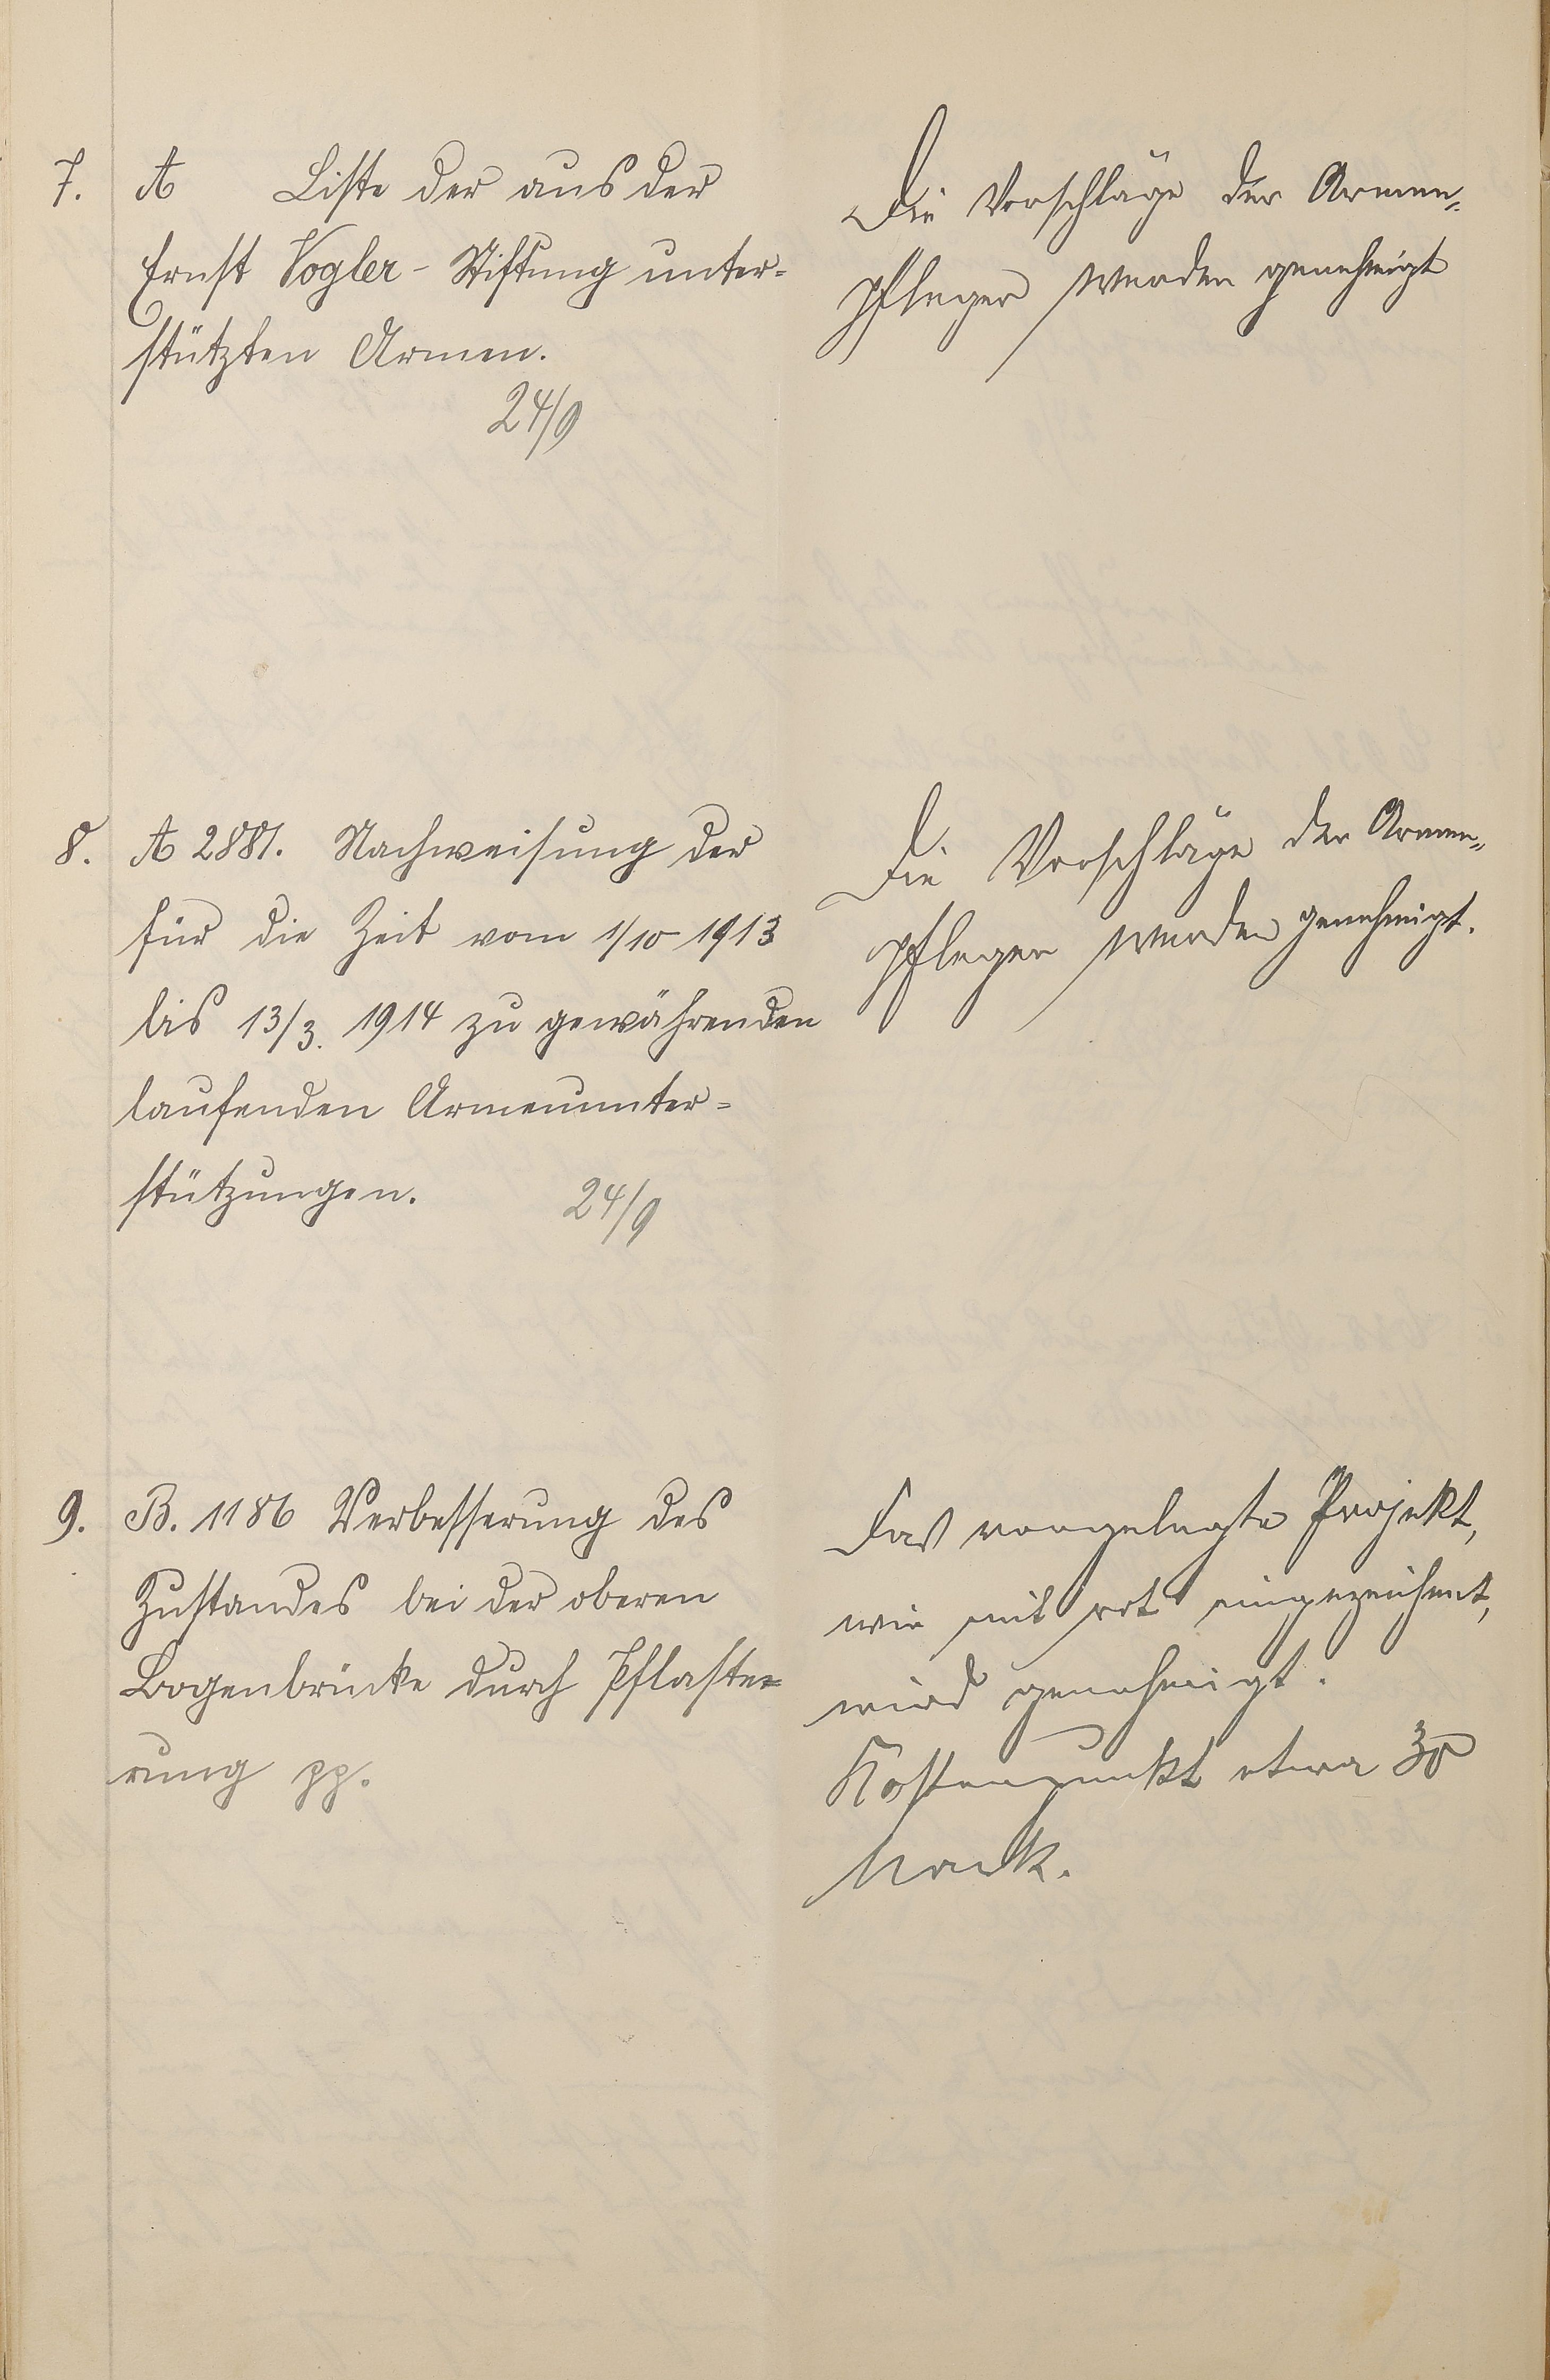 7. A Liste der aus der
Ernst Vogler-Stiftung unter-
stützten Armen.
24/9
Die Vorschläge der Armen-
pfleger werden genehmigt
8. A 2881. Nachweisung der
für die Zeit vom 1/10 1913
bis 13/3. 1914 zu gewährenden
laufenden Armenunter-
stützungen.
24/9
Die Vorschläge der Armen-
pfleger werden genehmigt.
9. B. 1186 Verbesserung des
Zustandes bei der oberen
Bogenbrücke durch Pflaste-
rung pp.
Das vorgelegte Projekt,
wie mit rot eingezeichnet,
wird genehmigt.
Kostenpunkt etwa 30
Mark.